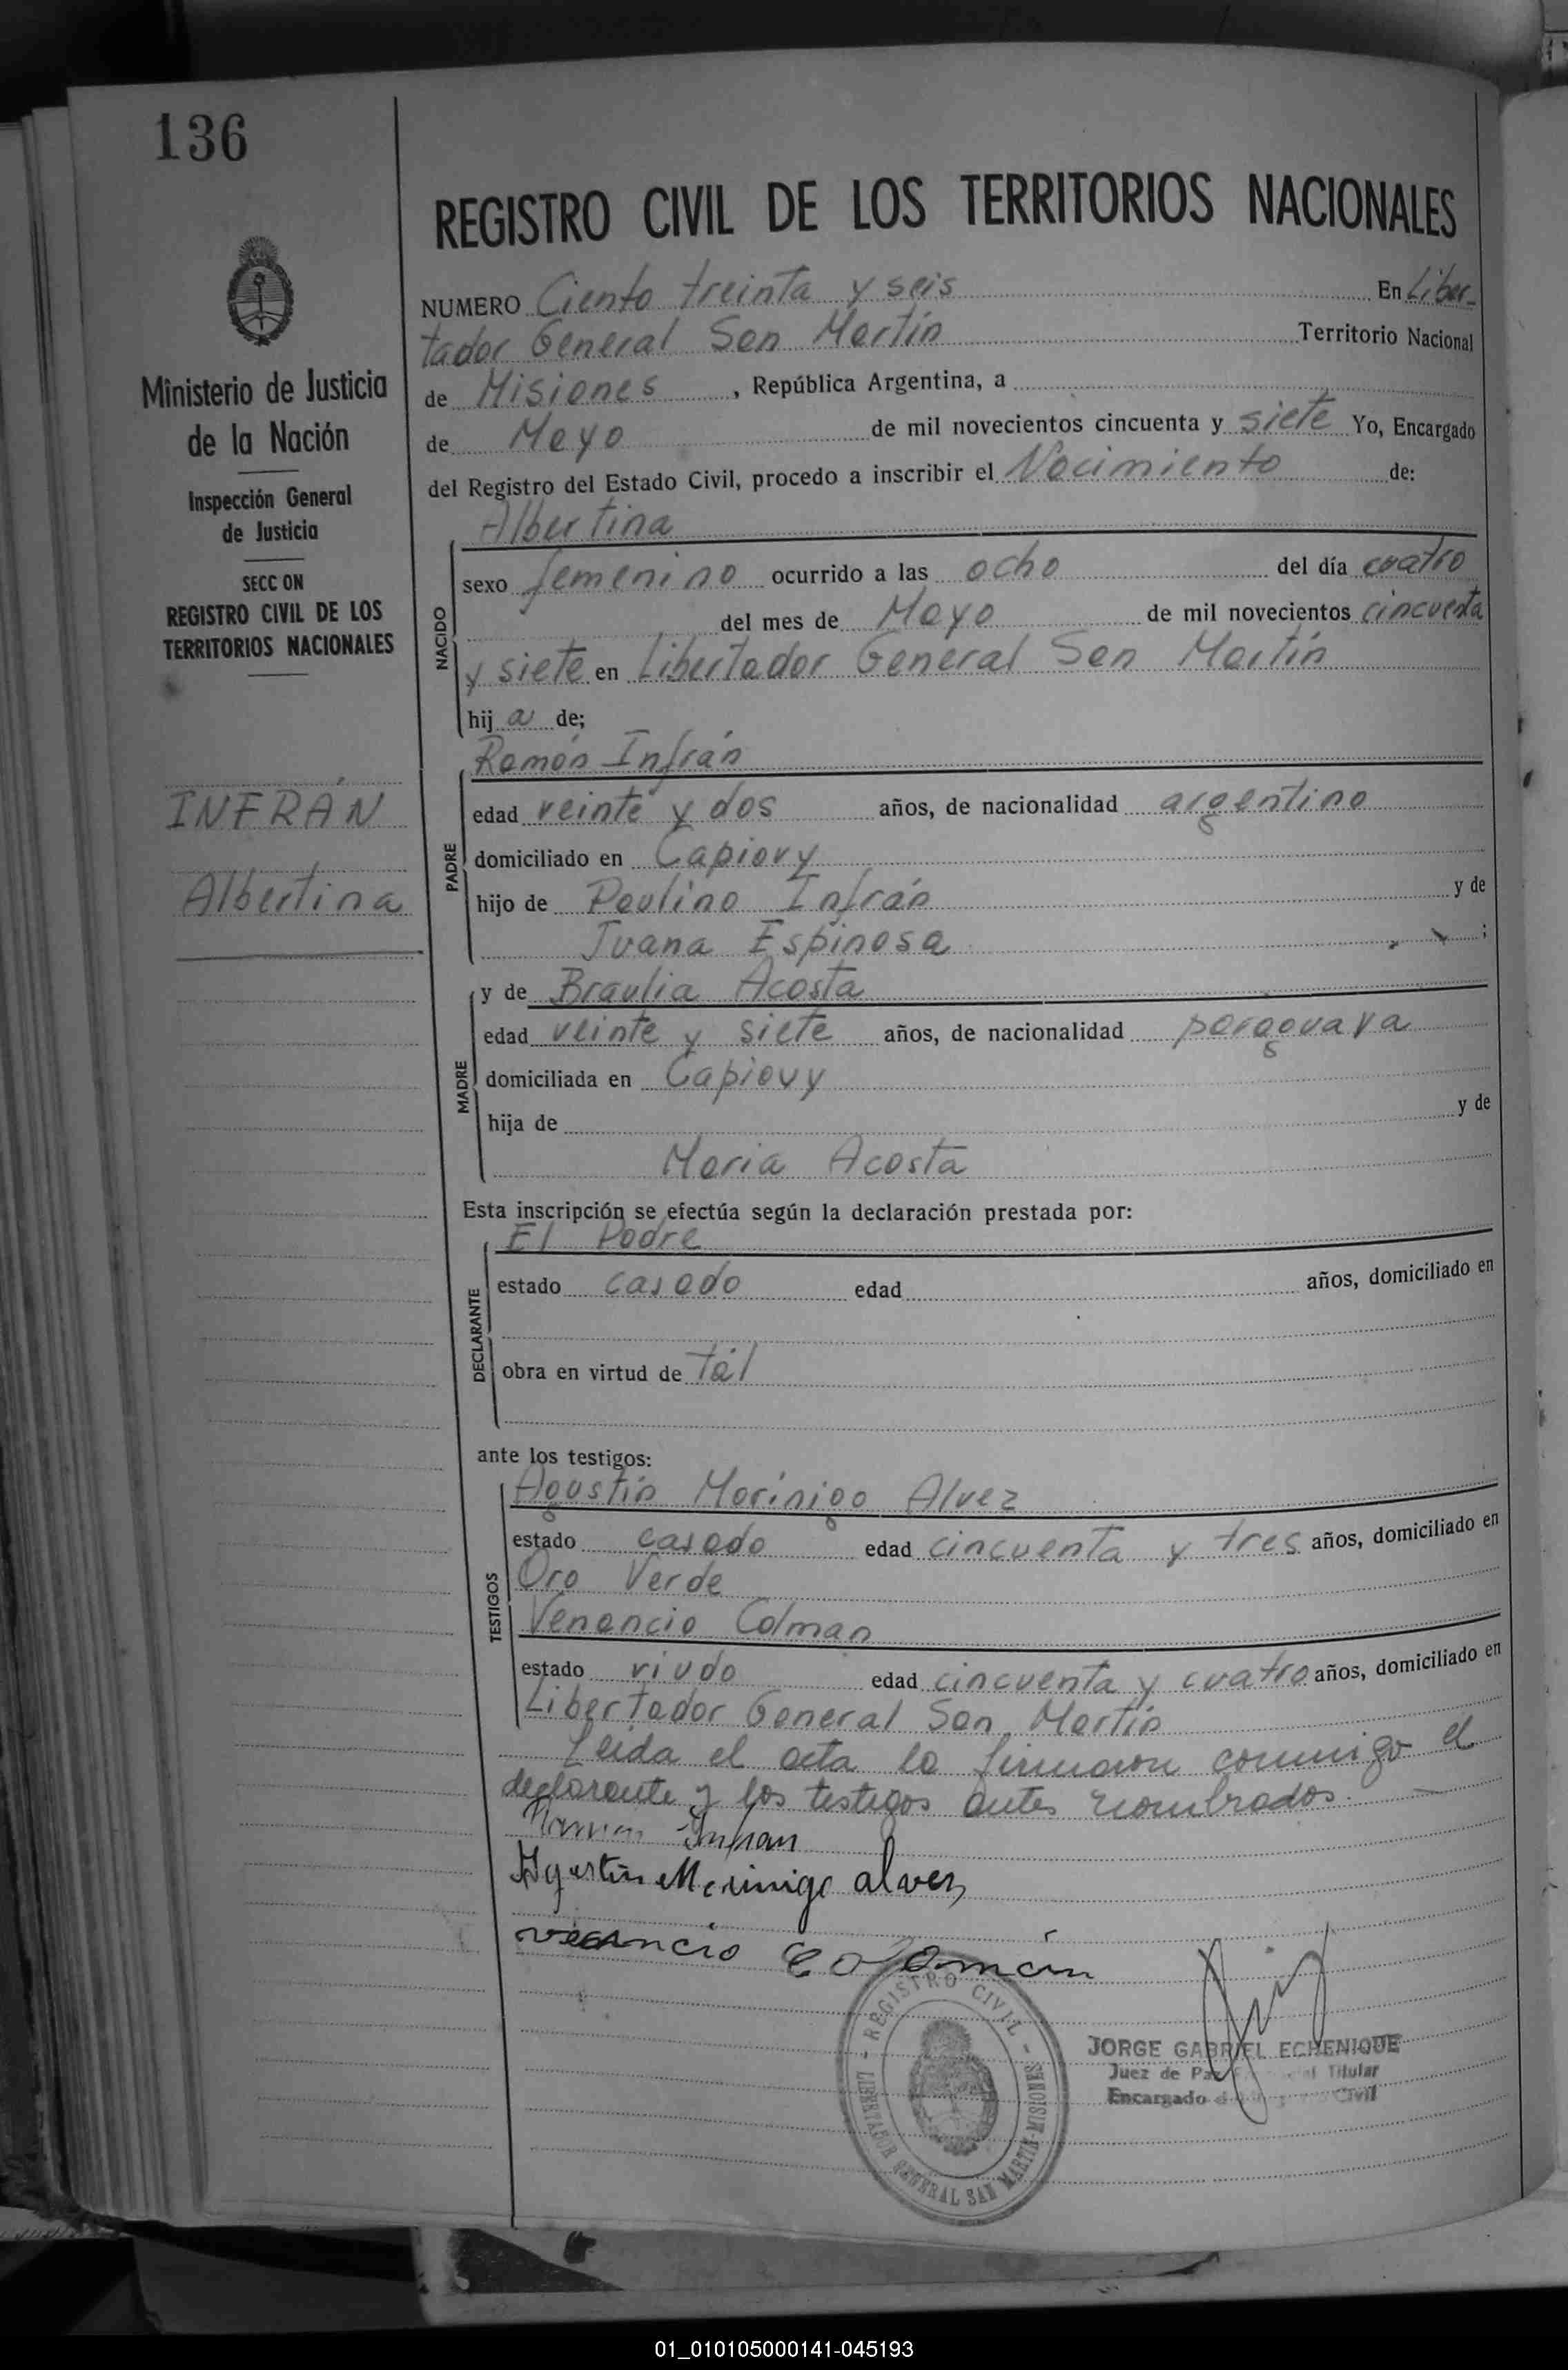 136
REGISTRO CIVIL DE LOS TERRITORIOS NACIONALES
Ministerio de Justicia
de la Nación
Inspección General
de Justicia
SECC ON
REGISTRO CIVIL DE LOS
TERRITORIOS NACIONALES
INFRÁN
Albertina
NUMERO Ciento treinta y seis En Liber-
tador General San Martín Territorio Nacional
de Misiones, República Argentina, a
de Mayo de mil novecientos cincuenta y siete Yo, Encargado
del Registro del Estado Civil, procedo a inscribir el Nacimiento de:
Albertina
NACIDO
sexo femenino ocurrido a las ocho del día cuatro
del mes de Mayo de mil novecientos cincuenta
y siete en Libertador General San Martín
hij a de;
Ramón Infrán
PADRE
edad veinte y dos años, de nacionalidad argentino
domiciliado en Capiovy
hijo de Paulino Infrán y de
Juana Espinosa ;
MADRE
y de Braulia Acosta
edad veinte y siete años, de nacionalidad paraguaya
domiciliada en Capiovy
hija de y de
Maria Acosta
Esta inscripción se efectúa según la declaración prestada por:
El Padre
DECLARANTE
estado casado edad años, domiciliado en
obra en virtud de tál
ante los testigos:
Agustín Morínigo Alvez
TESTIGOS
estado casado edad cincuenta y tres años, domiciliado en
Oro Verde
Venancio Colman
estado viudo edad cincuenta y cuatro años, domiciliado en
Libertador General San Martín
Leida el acta la firmaron conmigo el
declarante y los testigos antes nombrados.
Ramon Infran
Agustin Morinigo alvez
venancio Colomán
REGISTRO CIVIL
LIBERTADOR GENERAL SAN MARTIN-MISIONES
JORGE GABRIEL ECHENIQUE
Juez de Paz Titular
Encargado Civil
01_010105000141-045193